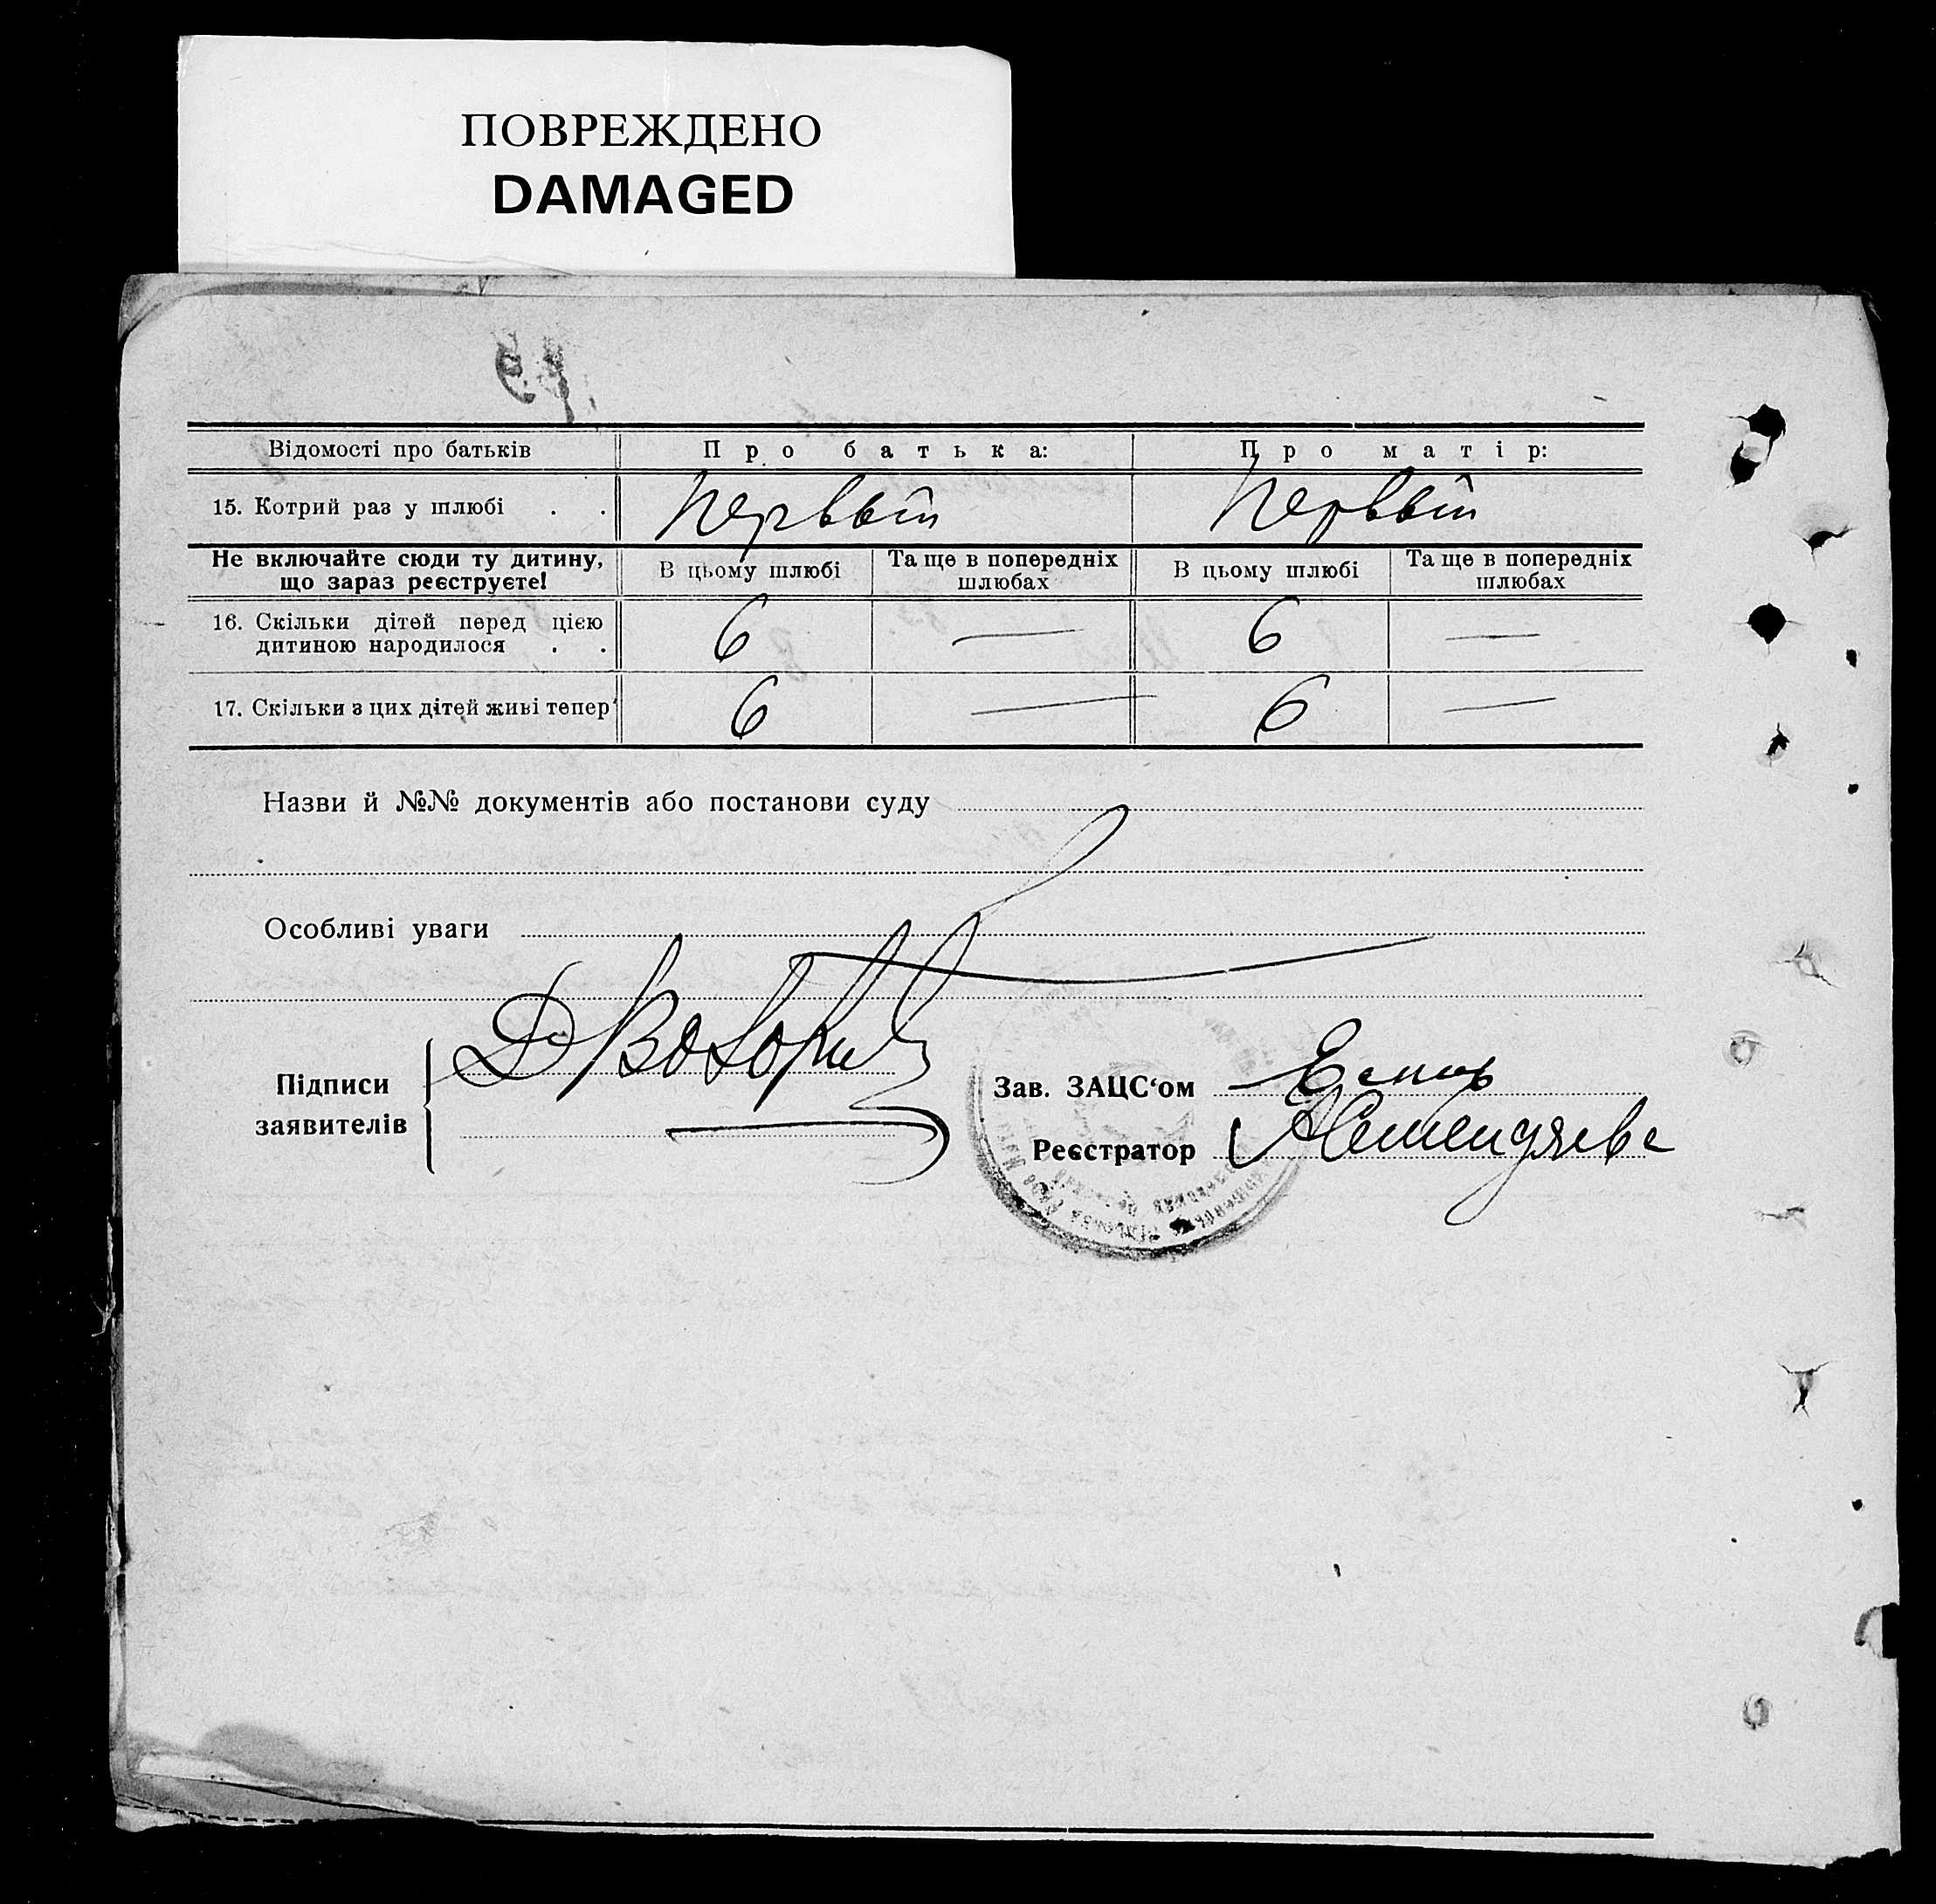 ПОВРЕЖДЕНО
DAMAGED
Відомості про батьків Про батька: Про матір:
15. Котрий раз у шлюбі . . Первый Первый
Не включайте сюди ту дитину, що зараз реєструєте! В цьому шлюбі Та ще в попередніх шлюбах В цьому шлюбі Та ще в попередніх шлюбах
16. Скільки дітей перед цією дитиною народилося . . 6 — 6 —
17. Скільки з цих дітей живі тепер 6 — 6 —
Назви й №№ документів або постанови суду
Особливі уваги
Підписи заявителів
Зав. ЗАЦС‘ом
Реєстратор